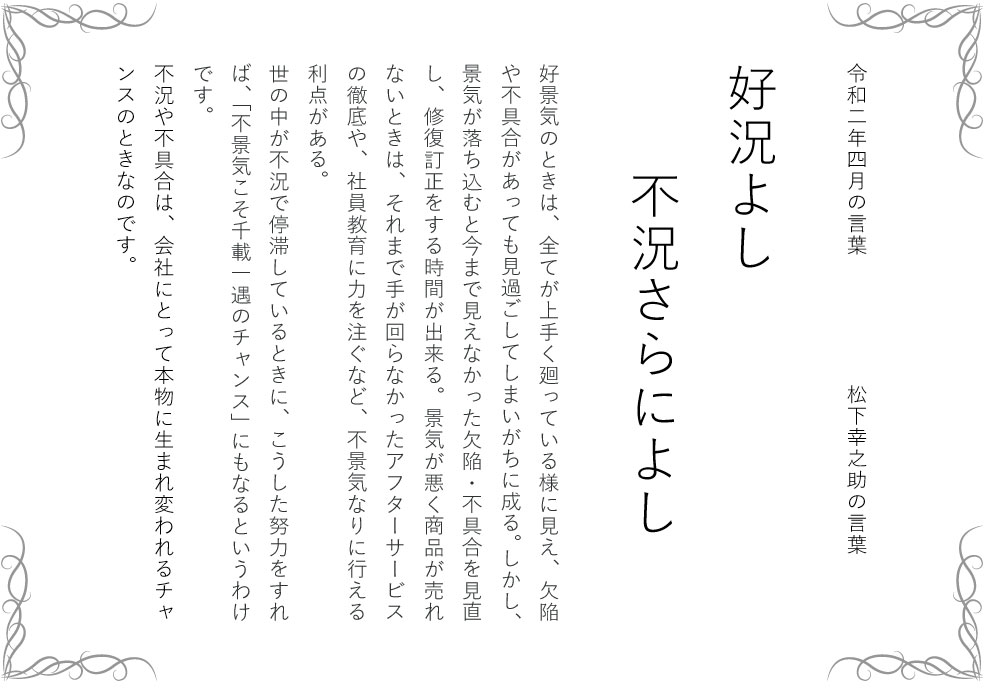 令和二年四月の言葉　松下幸之助の言葉
好況よし
不況さらによし
好景気のときは、全てが上手く廻っている様に見え、欠陥
や不具合があっても見過ごしてしまいがちに成る。しかし、
景気が落ち込むと今まで見えなかった欠陥・不具合を見直
し、修復訂正をする時間が出来る。景気が悪く商品が売れ
ないときは、それまで手が回らなかったアフターサービス
の徹底や、社員教育に力を注ぐなど、不景気なりに行える
利点がある。
世の中が不況で停滞しているときに、こうした努力をすれ
ば、「不景気こそ千載一遇のチャンス」にもなるというわけ
です。
不況や不具合は、会社にとって本物に生まれ変われるチャ
ンスのときなのです。